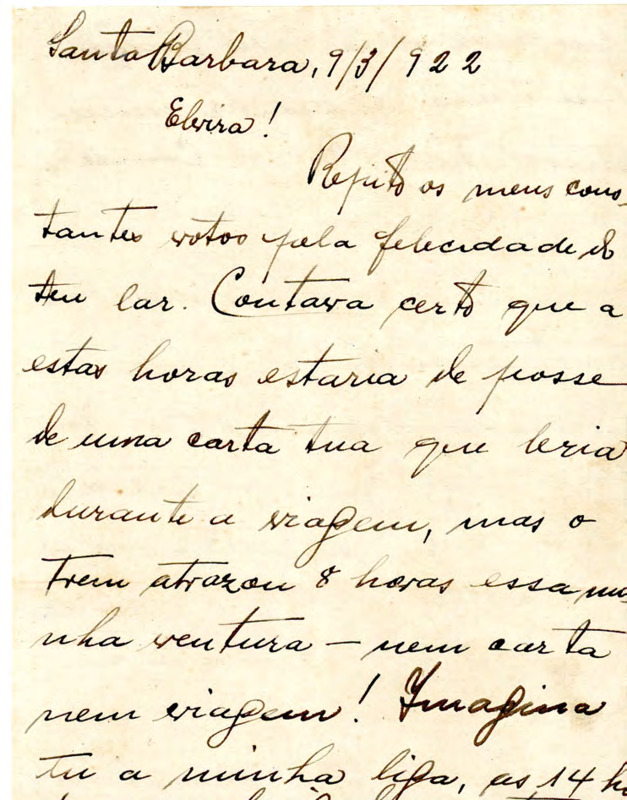 Santa Barbara, 9/3/922
Elvira!
Repito os meus cons-
tantes votos pela felecidade do
teu lar. Contava certo que a
estas horas estaria de posse
de uma carta tua que leria
durante a viagem, mas o
trem atrazou 8 horas essa mi-
nha ventura – nem carta
nem viagem! Imagina
tu a minha liga, as 14 h